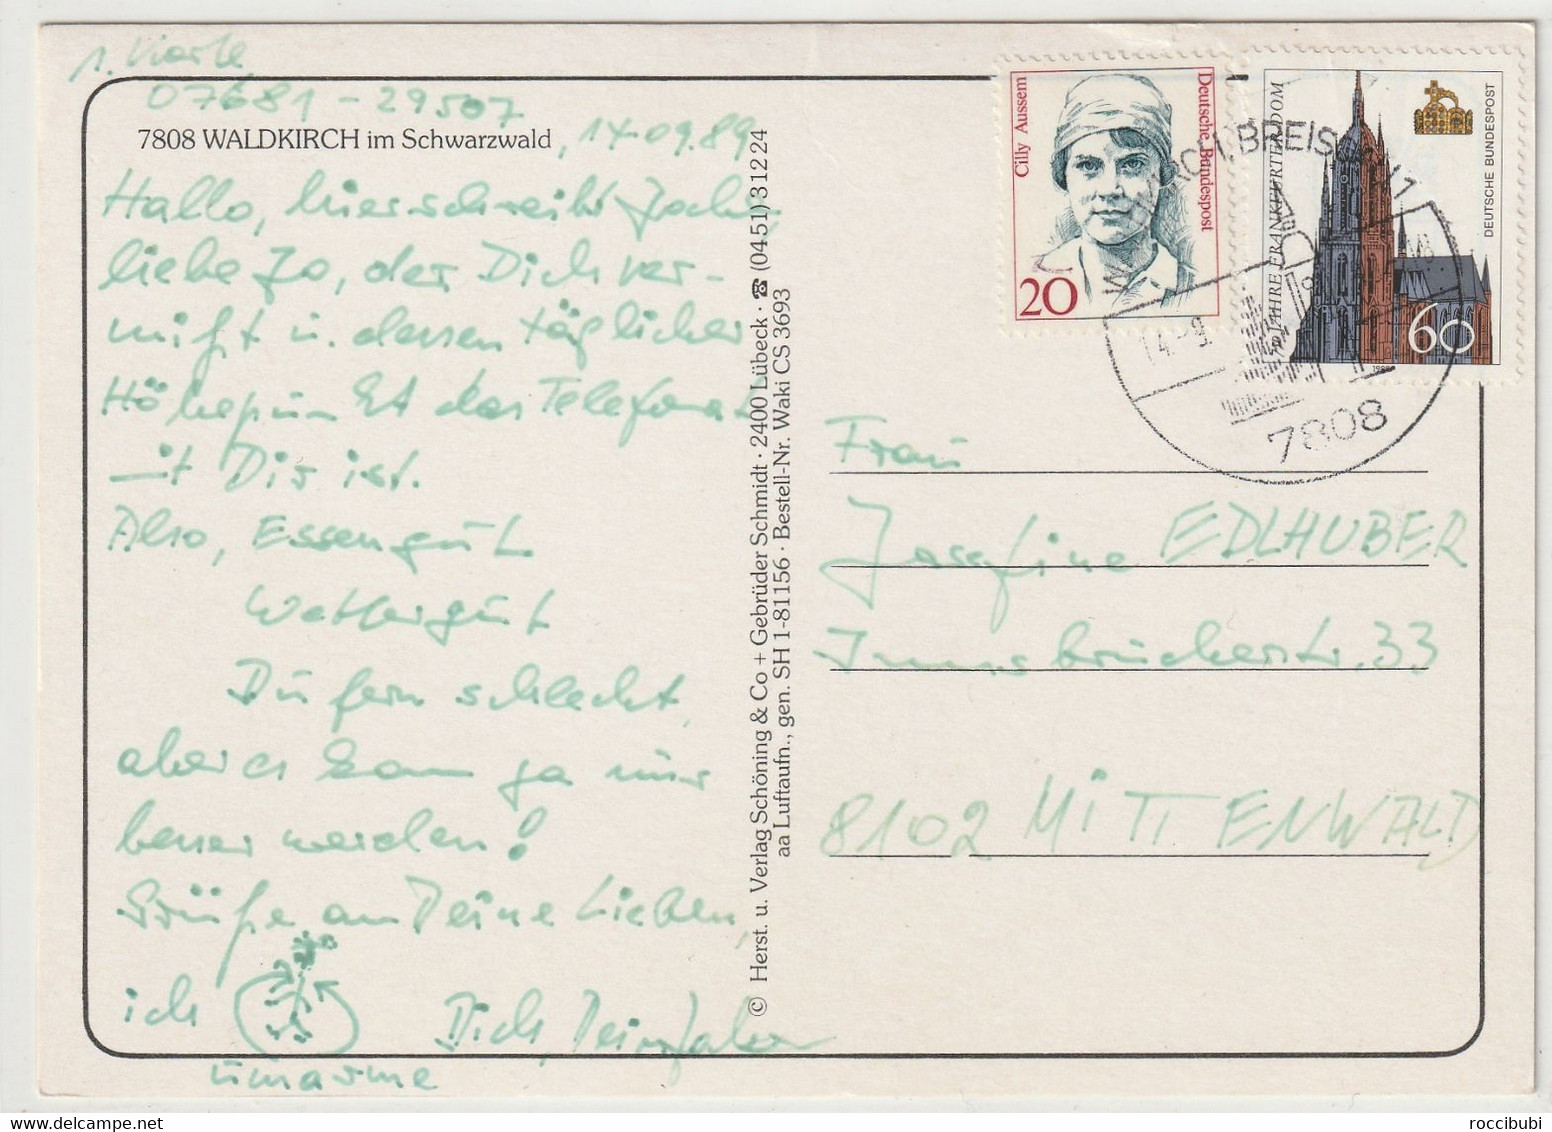 1. Karte
07681-29507
7808 WALDKIRCH im Schwarzwald
, 14.09.89
Hallo, hier schreibt
liebe Jo, der Dich ver-
mißt u. dessen täglicher
Höhepunkt das Telefonat
mit Dir ist.
Also, Essen gut
Wetter gut
Du fern schlecht,
aber es kann ja nur
besser werden!
Grüße an Deine Lieben,
ich
umarme
Dich, Dein
© Herst. u. Verlag Schöning & Co + Gebrüder Schmidt · 2400 Lübeck · ☎ (0451) 31224
aa Luftaufn., gen. SH 1-81156 · Bestell-Nr. Waki CS 3693
Cilly Aussem
Deutsche Bundespost
20
JAHRE FRANKFURTER DOM
DEUTSCHE BUNDESPOST
60
BREISG
14.-9.
7808
Frau
Josefine EDLHUBER
Innsbruckerstr. 33
8102 MITTENWALD
delcampe.net
roccibubi